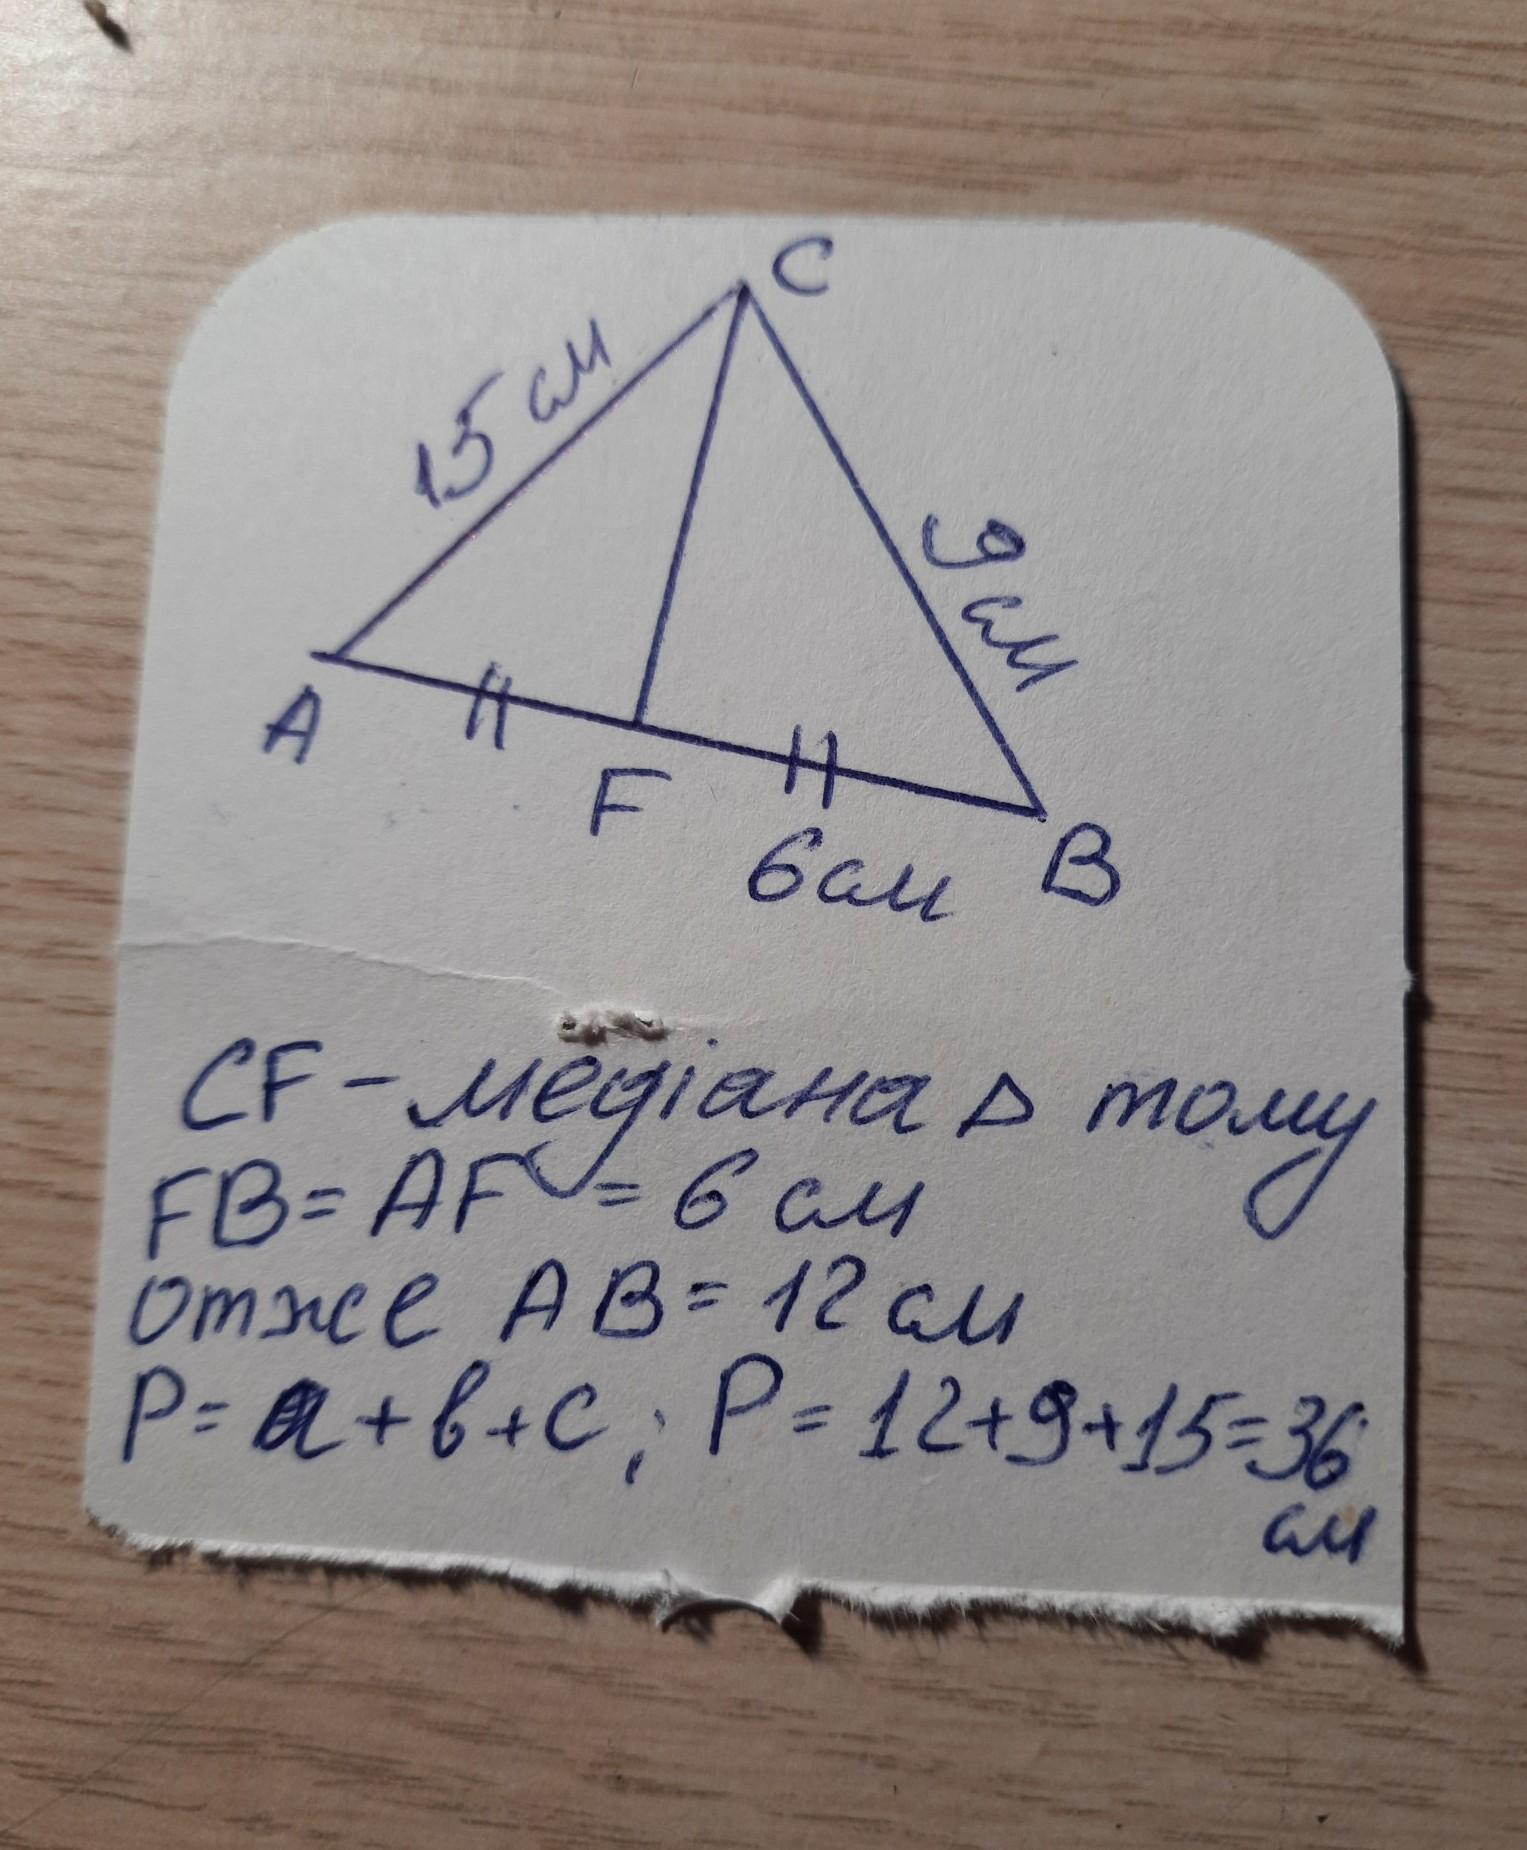 C
15 см
9 см
A
F
6 см
B
CF - медіана △ тому
FB = AF = 6 см
отже AB = 12 см
P = a + b + c ; P = 12+9+15=36
см